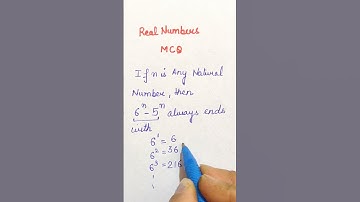 Real Numbers
MCQ
If n is Any Natural
Number, then
6ⁿ - 5ⁿ always ends
with
6¹ = 6
6² = 36
6³ = 216